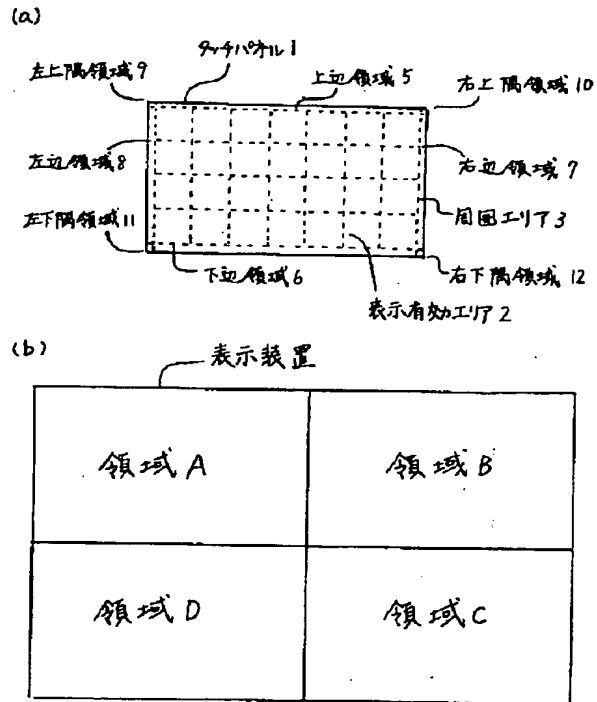 (a)
タッチパネル1
左上隅領域9
上辺領域5
右上隅領域10
左辺領域8
右辺領域7
左下隅領域11
周囲エリア3
下辺領域6
右下隅領域12
表示有効エリア2
(b)
表示装置
領域A
領域B
領域D
領域C